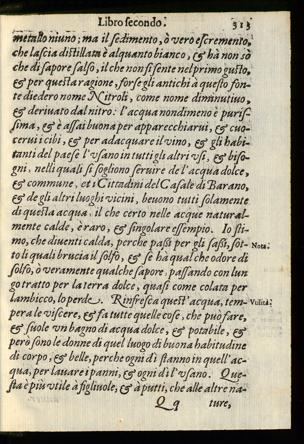 Libro secondo. 313
metallo niuno; ma il sedimento, ò vero escremento,
che lascia distillata è alquanto bianco, & hà non sò
che di sapore salso, il che non si sente nel primo gusto,
& per questa ragione, forse gli antichi à questo fon-
te diedero nome Nitroli, come nome diminutiuo,
& deriuato dal nitro: l'acqua nondimeno è puris-
sima, & è assai buona per apparecchiarui, & cuo-
cerui i cibi, & per adacquare il vino, & gli habi-
tanti del paese l'vsano in tutti gli altri vsi, & biso-
gni, nelli quali si sogliono seruire de l'acqua dolce,
& commune, et i Cittadini del Casale di Barano,
& de gli altri luoghi vicini, beuono tutti solamente
di questa acqua, il che certo nelle acque natural-
mente calde, è raro, & singolare essempio. Io sti-
mo, che diuenti calda, perche passi per gli sassi, sot- Nota.
to li quali brucia il solfo, & se hà qual che odore di
solfo, ò veramente qualche sapore, passando con lun
go tratto per la terra dolce, quasi come colata per
lambicco, lo perde. Rinfresca quest' acqua, tem- Vtilità.
pera le viscere, & fa tutte quelle cose, che può fare,
& suole vn bagno di acqua dolce, & potabile, &
però sono le donne di quel luogo di buona habitudine
di corpo, & belle, perche ogni dì stanno in quell' ac-
qua, per lauare i panni, & ogni dì l'vsano. Que-
sta è più vtile à figliuole, & à putti, che alle altre na-
Qq ture,